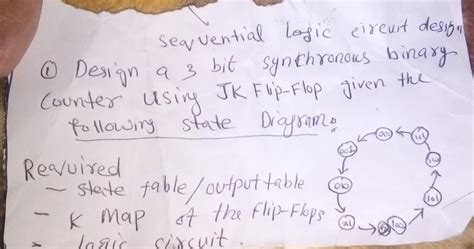 Seqvential logic circuit design
① Design a 3 bit synthronous binary
Counter using JK Flip-Flop given the
following state Diagram:
Reqvired
- state table/output table
- K Map of the Flip-Flops
- logic circuit.
000
111
001
110
010
101
011
100